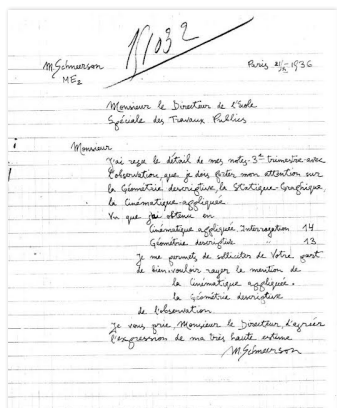 151032
M. Schneerson
ME₂
Paris 1936
Monsieur le Directeur de l'Ecole
Spéciale des Travaux Publics
Monsieur
J'ai reçu le détail de mes notes 3ᵉ trimestre avec
l'observation, que je dois porter mon attention sur
la Géométrie descriptive, la Statique-Graphique,
la Cinématique appliquée.
Vu que j'ai obtenu en
Cinématique appliquée Interrogation 14
Géométrie descriptive " 13
Je me permets de solliciter de Votre part
de bien vouloir rayer la mention de
la Cinématique appliquée.
la Géométrie descriptive
de l'observation.
Je vous prie, Monsieur le Directeur d'agréer
l'expression de ma très haute estime
M. Schneerson